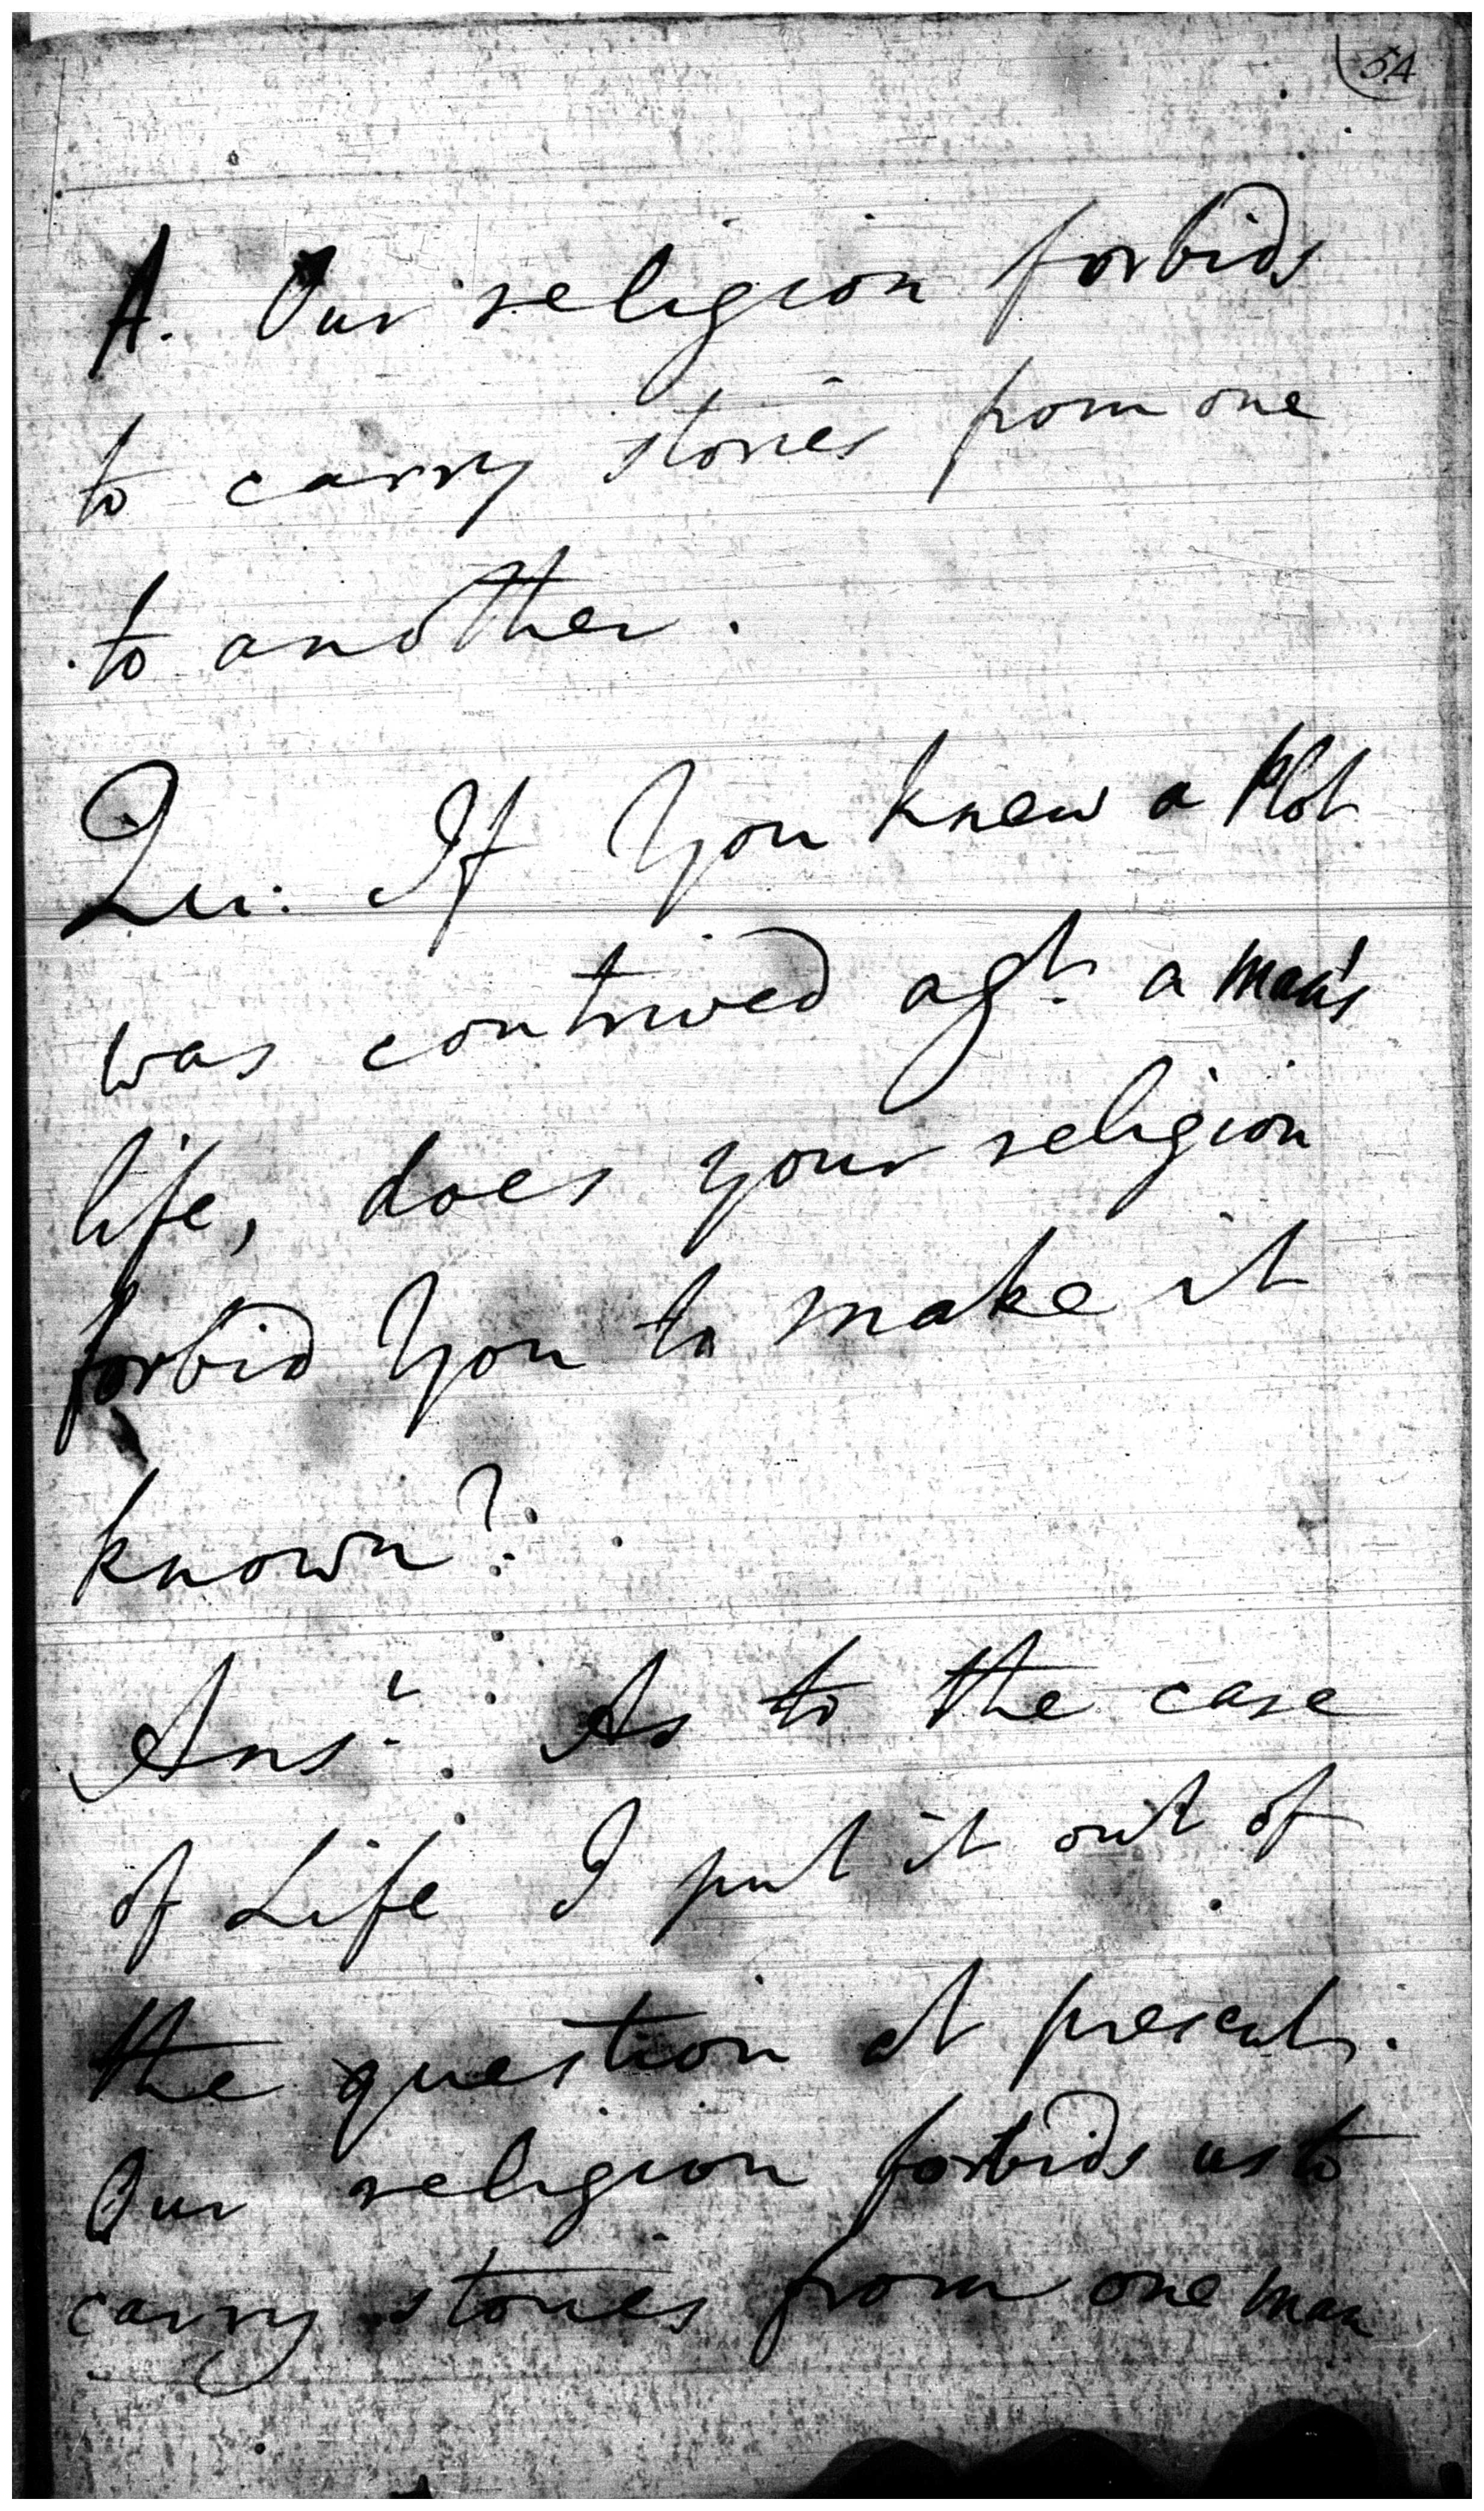 54
A. Our religion forbids
to carry stories from one
to another.
Qu: If You knew a Plot
was contrived agt. a man's
life, does your religion
forbid You to make it
known?
Ansr: As to the case
of Life I put it out of
the question at present.
Our religion forbids us to
carry stories from one man